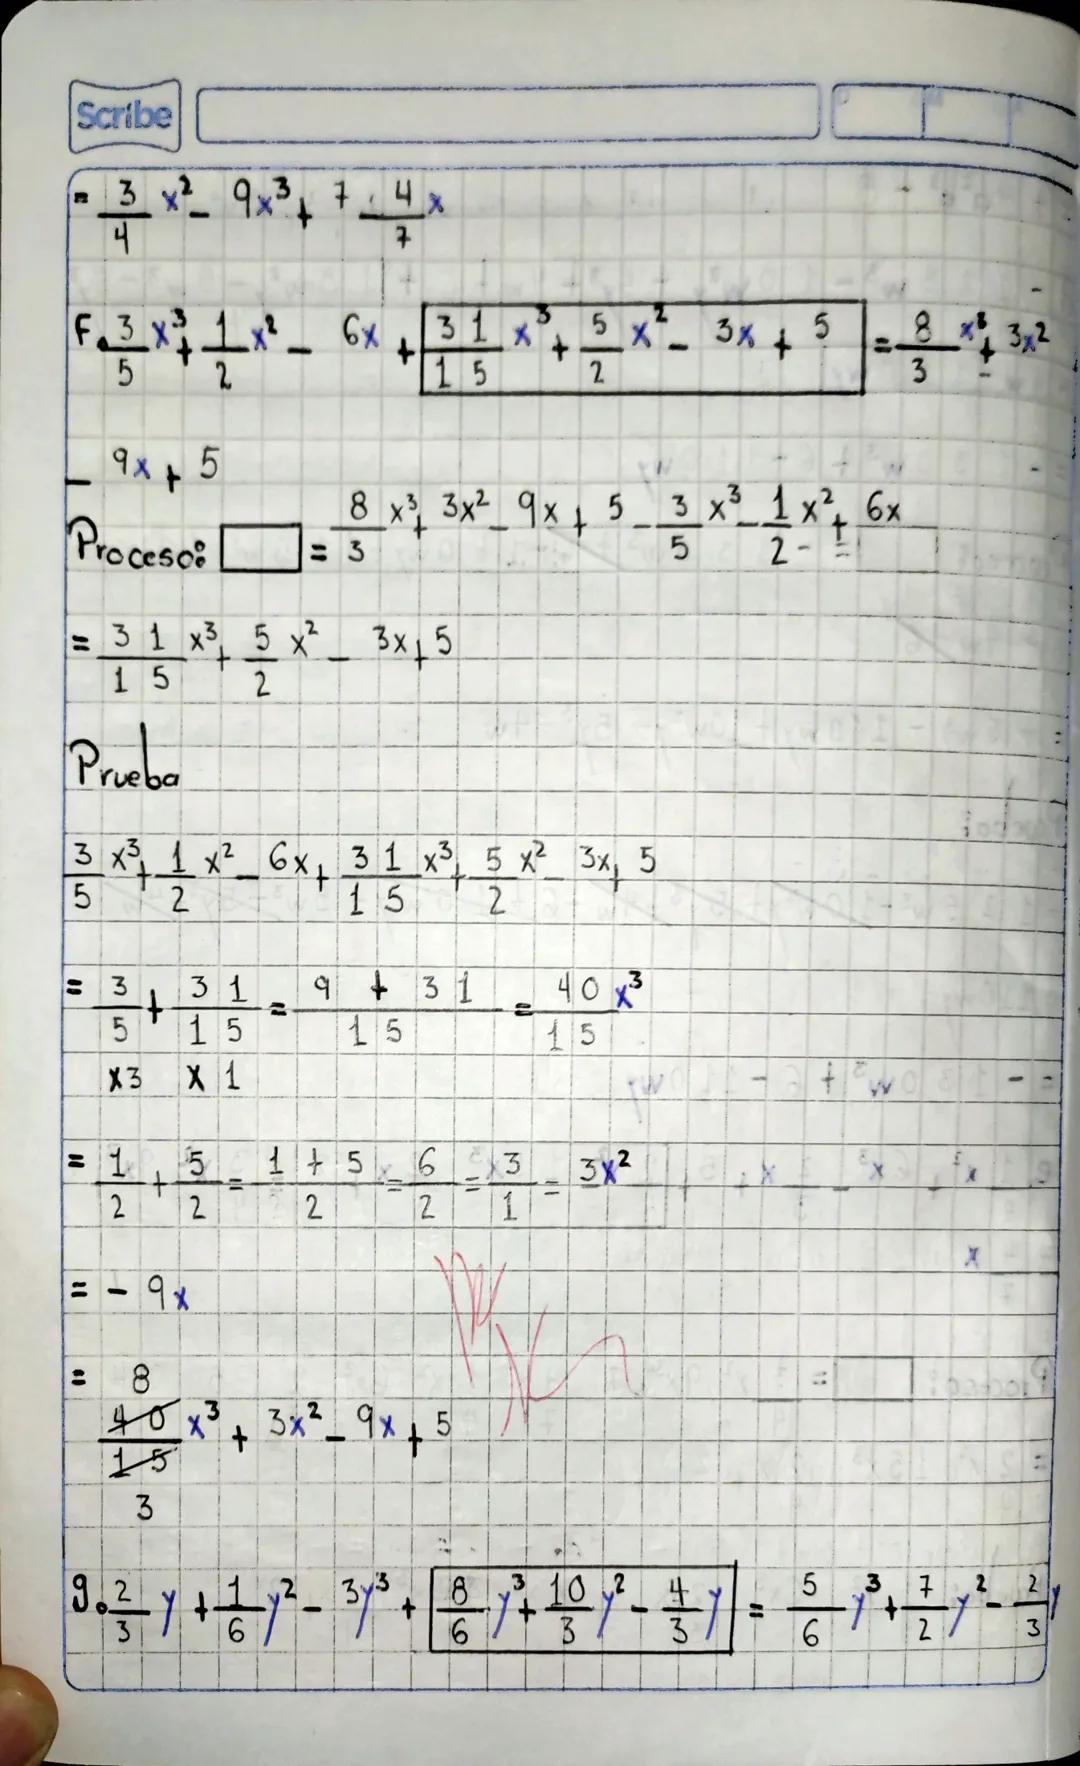 Scribe
= 3/4 x² - 9x³ + 7 - 4/7 x
F. 3/5 x³ + 1/2 x² - 6x + 31/15 x³ + 5/2 x² - 3x + 5 = 8/3 x³ + 3x²
- 9x + 5
Proceso: = 8/3 x³ + 3x² - 9x + 5 - 3/5 x³ - 1/2 x² + 6x
= 31/15 x³ + 5/2 x² - 3x + 5
Prueba
3/5 x³ + 1/2 x² - 6x + 31/15 x³ + 5/2 x² - 3x + 5
= 3/5 + 31/15 = 9 + 31/15 = 40/15 x³
x3 x1
= 1/2 + 5/2 = 1 + 5/2 = 6/2 = 3/1 = 3x²
= - 9x
= 8
40/15 x³ + 3x² - 9x + 5
3
g. 2/3 y + 1/6 y² - 3y³ + 8/6 y³ + 10/3 y² - 4/3 y = 5/6 y³ + 7/2 y² - 2/3 y